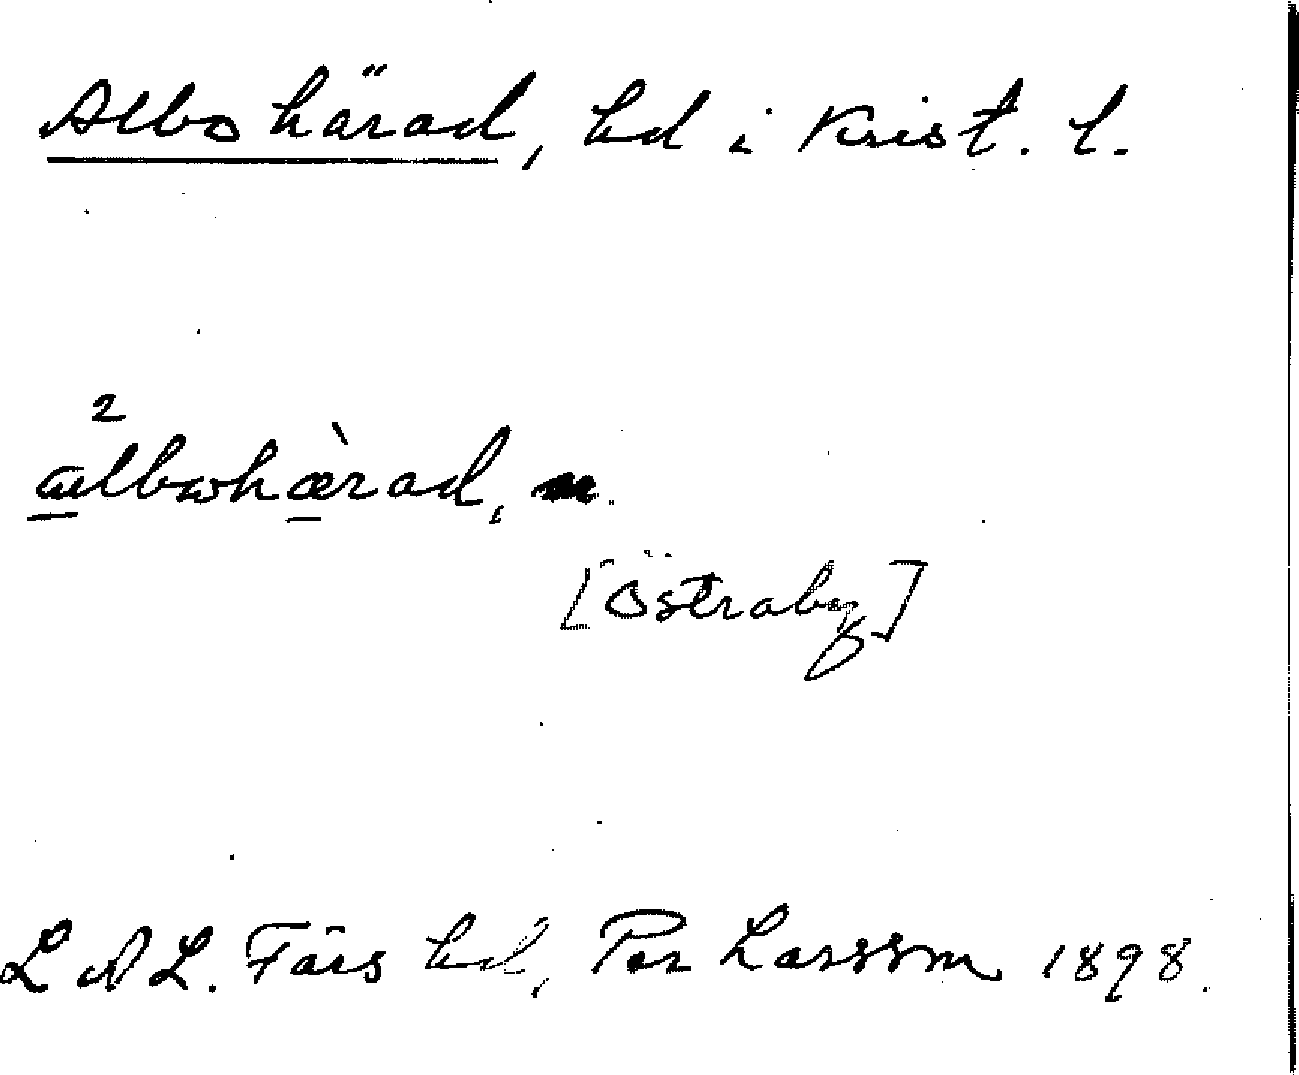 Albo härad, hd i Krist. l.
2
ælbωhæ̀rad,
[Östraby]
LAL. Färs hd, Per Larsson 1898.